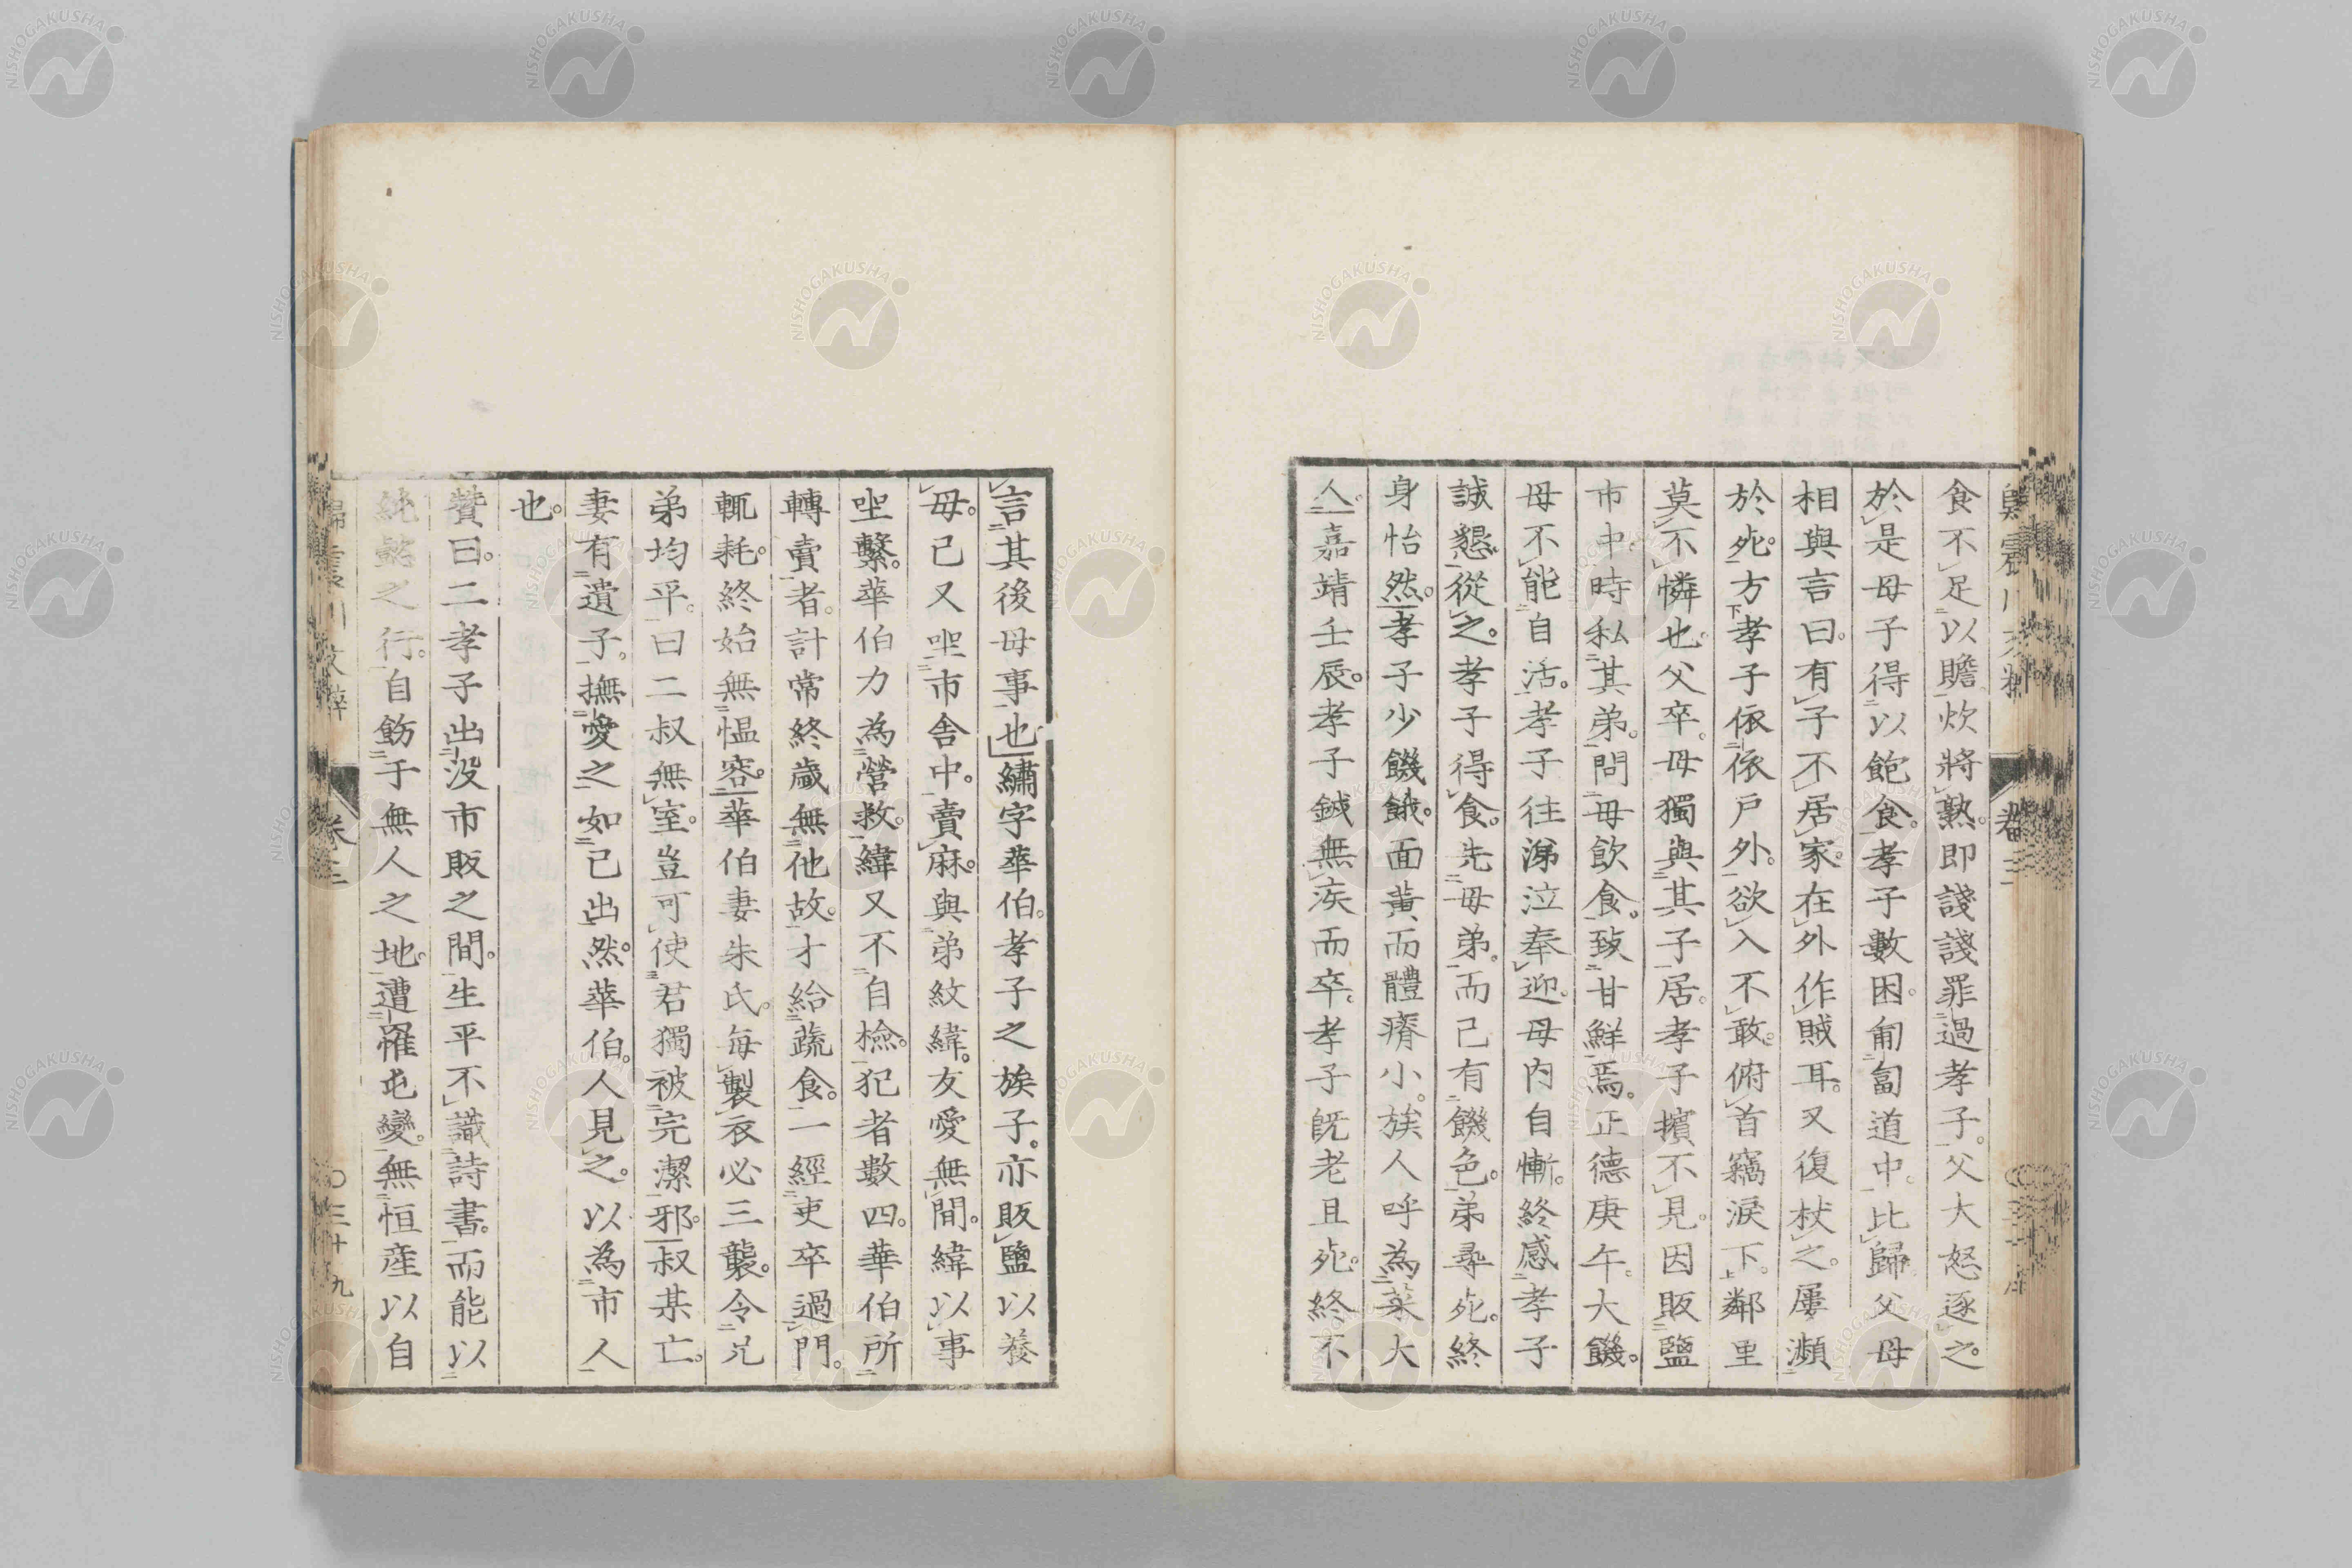 食不足以贍炊將熟即諓諓罪過孝子。父大怒逐之。
於是母子得以飽食。孝子數困。匍匐道中。比歸父母
相與言曰。有子不居家。在外作賊耳。又復杖之。屢瀕
於死。方孝子依依戶外。欲入不敢。俯首竊淚下。鄰里
莫不憐也。父卒。母獨與其子居。孝子擯不見。因販鹽
市中。時私其弟。問母飲食。致甘鮮焉。正德庚午。大饑。
母不能自活。孝子往涕泣奉迎。母內自慚。終感孝子
誠懇從之。孝子得食。先母弟。而己有饑色。弟尋死。終
身怡然。孝子少饑餓。面黃而體瘠小。族人呼為菜大
人。嘉靖壬辰。孝子鉞無疾而卒。孝子既老且死。終不
言其後母事也繡字華伯。孝子之族子。亦販鹽以養
母。己又坐市舍中。賣麻。與弟紋緯。友愛無間。緯以事
坐繫。華伯力為營救。緯又不自檢。犯者數四。華伯所
轉賣者。計常終歲無他故。才給蔬食。一經吏卒過門。
輒耗。終始無慍容。華伯妻朱氏。每製衣必三襲。令兄
弟均平。曰二叔無室。豈可使君獨被完潔邪。叔某亡。
妻有遺子。撫愛之如己出。然華伯。人見之。以為市人
也。
贊曰。二孝子出沒市販之間。生平不識詩書。而能以
純懿之行。自飭于無人之地。遭罹屯變。無恒產以自
卷三
〇三十九